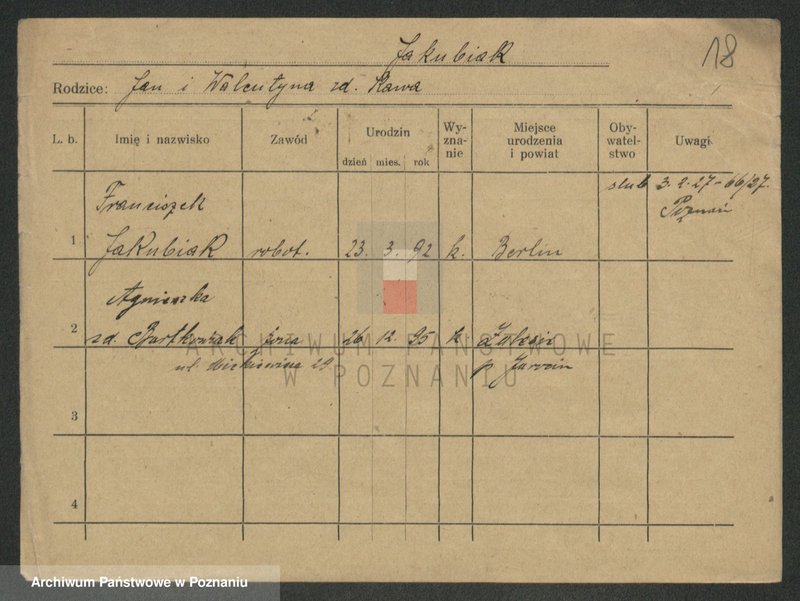 Jakubiak
18
Rodzice: Jan i Walentyna zd. Kawa
L. b. Imię i nazwisko Zawód Urodzin dzień mies. rok Wy-zna-nie Miejsce urodzenia i powiat Oby-watel-stwo Uwagi
ślub 3.2.27 - 66/27.
Poznań
Franciszek
1 Jakubiak robot. 23. 3. 92 k. Berlin
Agnieszka
2 zd. Bartkowiak żona 26 12. 95 k
ul. Mickiewicza 29 p. Jarocin
3
4
ARCHIWUM PAŃSTWOWE
W POZNANIU
Archiwum Państwowe w Poznaniu